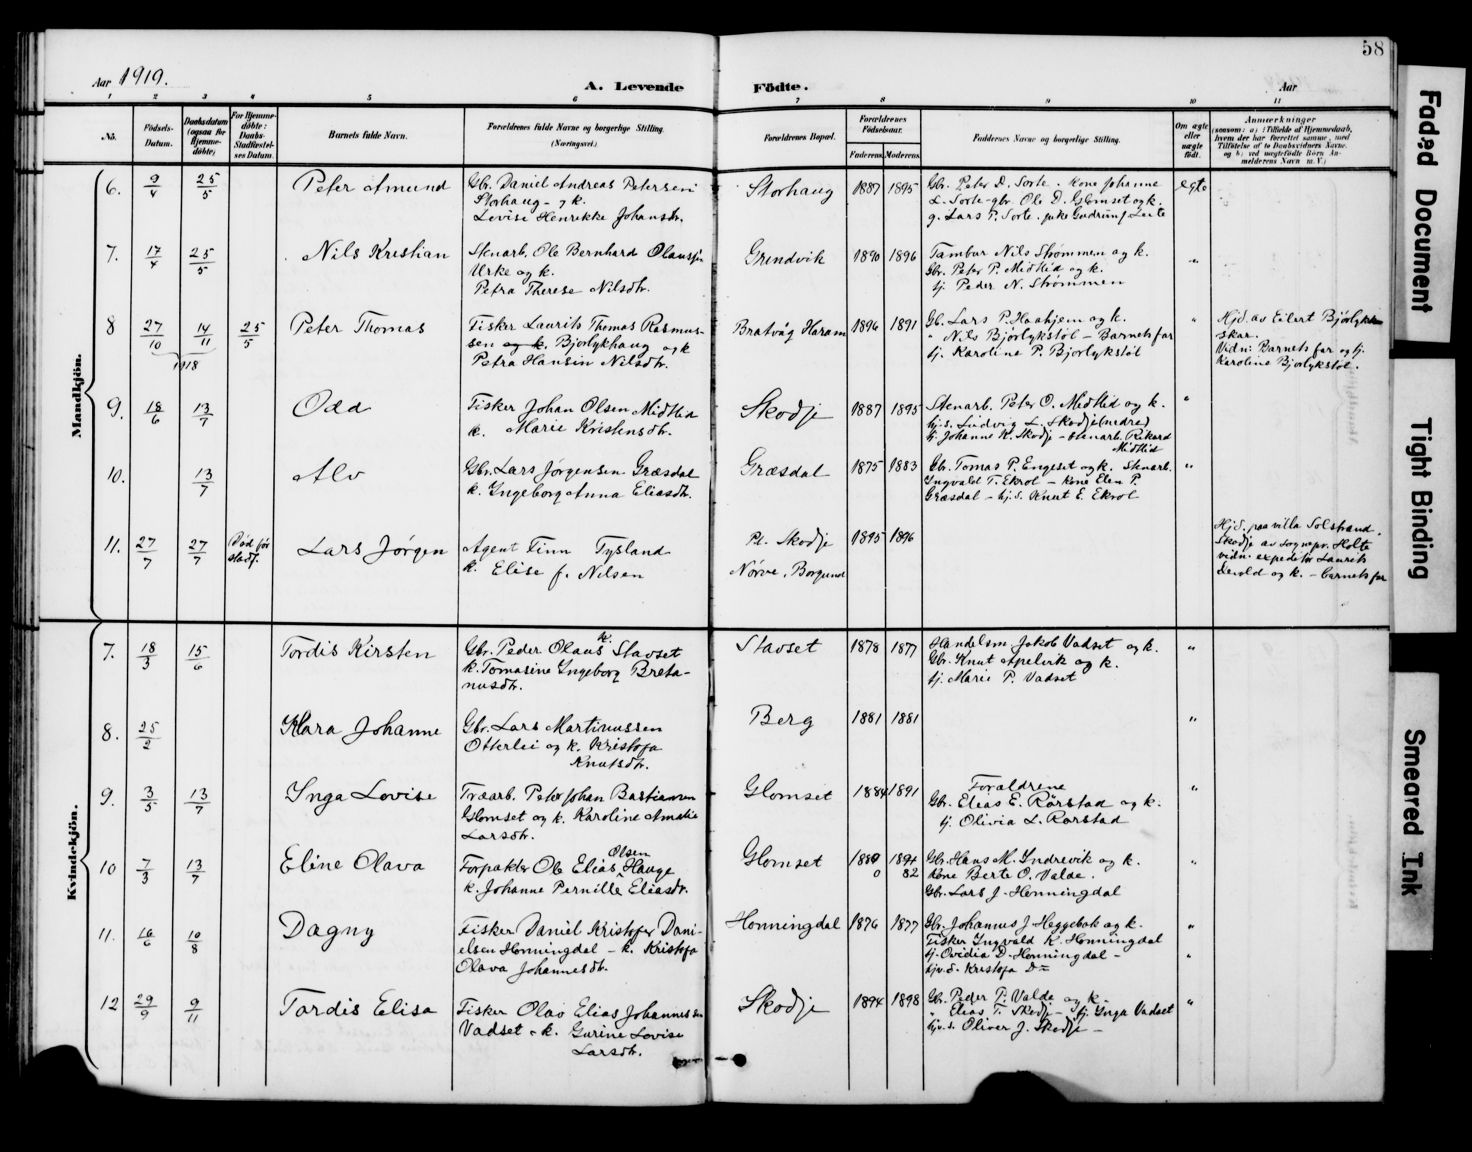 58
Aar 1919.
A. Levende Födte.
Aar
1 2 3 4 5 6 7 8 9 10 11
No.
Födsels-Datum.
Daabsdatum (ogsaa for Hjemme-döbte;
For Hjemme-döbte: Daabs-Stadfæstel-ses Datum.
Barnets fulde Navn.
Forældrenes fulde Navne og borgerlige Stilling. (Næringsvei.)
Forældrenes Bopæl.
Forældrenes Födselsaar.
Faderens. Moderens.
Faddernes Navne og borgerlige Stilling.
Om ægte eller uægte födt.
Anmærkninger
(saasom: a) i Tilfælde af Hjemmedaab, hvem der har forrettet samme, med Tilföielse af to Daabsvidners Navne. og b) ved uægtefödte Börn An-melderens Navn m. V.)
Mandkjön.
6. 9/4 25/5 Peter Amund
Gbr. Daniel Andreas Petersen
Storhaug - og k.
Lovise Henrikke Johansdr.
Storhaug 1887 1895
Gbr. Peter D. Sorte. Kone Johanne
L. Sorte - gbr. Ole D. Glomset og k.
g. Lars P. Sorte. pike Gudrun J. Leite
egte
7. 17/4 25/5 Nils Kristian
Stenarb. Ole Bernhard Olaussen
Urke og k.
Petra Therese Nilsdtr.
Grindvik 1890 1896
Tambur Nils Strømmen og k.
Gbr. Peter P. Midtlid og k.
tj. Peder N. Strømmen
"
8 27/10 14/11 1918 25/5 Peter Thomas
Fisker Laurits Thomas Rasmus-
sen og k. Bjorlykhaug og k
Petra Hansin Nilsdtr.
Bratvåg Haram 1896 1891
Gb. Lars P. Haahjem og k.
" Nils Bjørlykstøl - Barnets far
tj. Karoline P. Bjorlykstøl
"
Hjd. av Eilert Bjørlykke
skar.
Vidn: Barnets far og tj.
Karoline Bjorlykstøl.
9. 18/6 13/7 Odd
Fisker Johan Olsen Midtlid
k. Marie Kristensdtr.
Skodje 1887 1895
Stenarb. Peter O. Midtlid og k.
hj.s. Ludvig L. Skodje (nedre)
tj. Johanne K. Skodje - stenarb. Rikard
Midtlid
"
10. 13/7 Alv
Gbr. Lars Jørgensen Græsdal
k. Ingeborg Anna Eliasdtr.
Græsdal 1875 1883
Gb. Tomas P. Engeset og k. Stenarb.
Ingvald T. Ekrol - Kone Elen P.
Græsdal - hj.s. Knut E. Ekrol
"
11. 27/7 27/7 Død før
stadf. Lars Jørgen
Agent Finn Tysland
k. Elise f. Nilsen
Pl. Skodje 1895 1896
Nørve, Borgund
Hjd. paa villa Solstrand,
Skodje av sognepr. Holte
vidn. expeditør Laurits
Devold og k. - barnets far
Kvindekjön.
7. 18/3 15/6 Tordis Kirsten
Gbr. Peder Olaus K. Stavset
k. Tomasine Ingeborg Breta-
nusdtr.
Stavset 1878 1877
Handelsm Jakob Vadset og k.
Gbr. Knut Apelvik og k.
tj. Marie P. Vadset
"
8. 25/2 Klara Johanne
Gbr. Lars Martinussen
Otterlei og k. Kristofa
Knutsdtr.
Berg 1881 1881
"
9. 3/5 13/7 Inga Lovise
Træarb. Peter Johan Bastiansen
Glomset og k. Karoline Amalie
Larsdtr.
Glomset 1884 1891
Foraldrene
Gbr. Elias E. Rörstad og k.
tj. Olivia L. Rorstad
"
10 7/3 13/7 Eline Olava
Forpakter Ole Elias Olsen Hauge
k. Johanne Pernille Eliasdr.
Glomset 1880 1894
0 82
Gb. Hans M. Yndrevik og k.
Kone Berte O. Valde.
Gbr. Lars J. Honningdal
"
11. 16/6 10/8 Dagny
Fisker Daniel Kristofer Dani-
elsen Honningdal - k. Kristofa
Olava Johannesdtr.
Honningdal 1876 1877
Gbr. Johannes J Heggebak og k.
Fisker Ingvald K. Honningdal
tj. Ovidia D. Honningdal -
hjv.s. Kristofa Do
"
"
12 29/9 9/11 Tordis Elisa
Fisker Olav Elias Johannessen
Vadset - k. Gurine Lovise
Larsdtr.
Skodje 1894 1898
Gb. Peder P. Valde og k.
" Elias T. Skodje - tj. Inga Vadset
hjv.s. Oliver J. Skodje -
"
Faded Document
Tight Binding
Smeared Ink